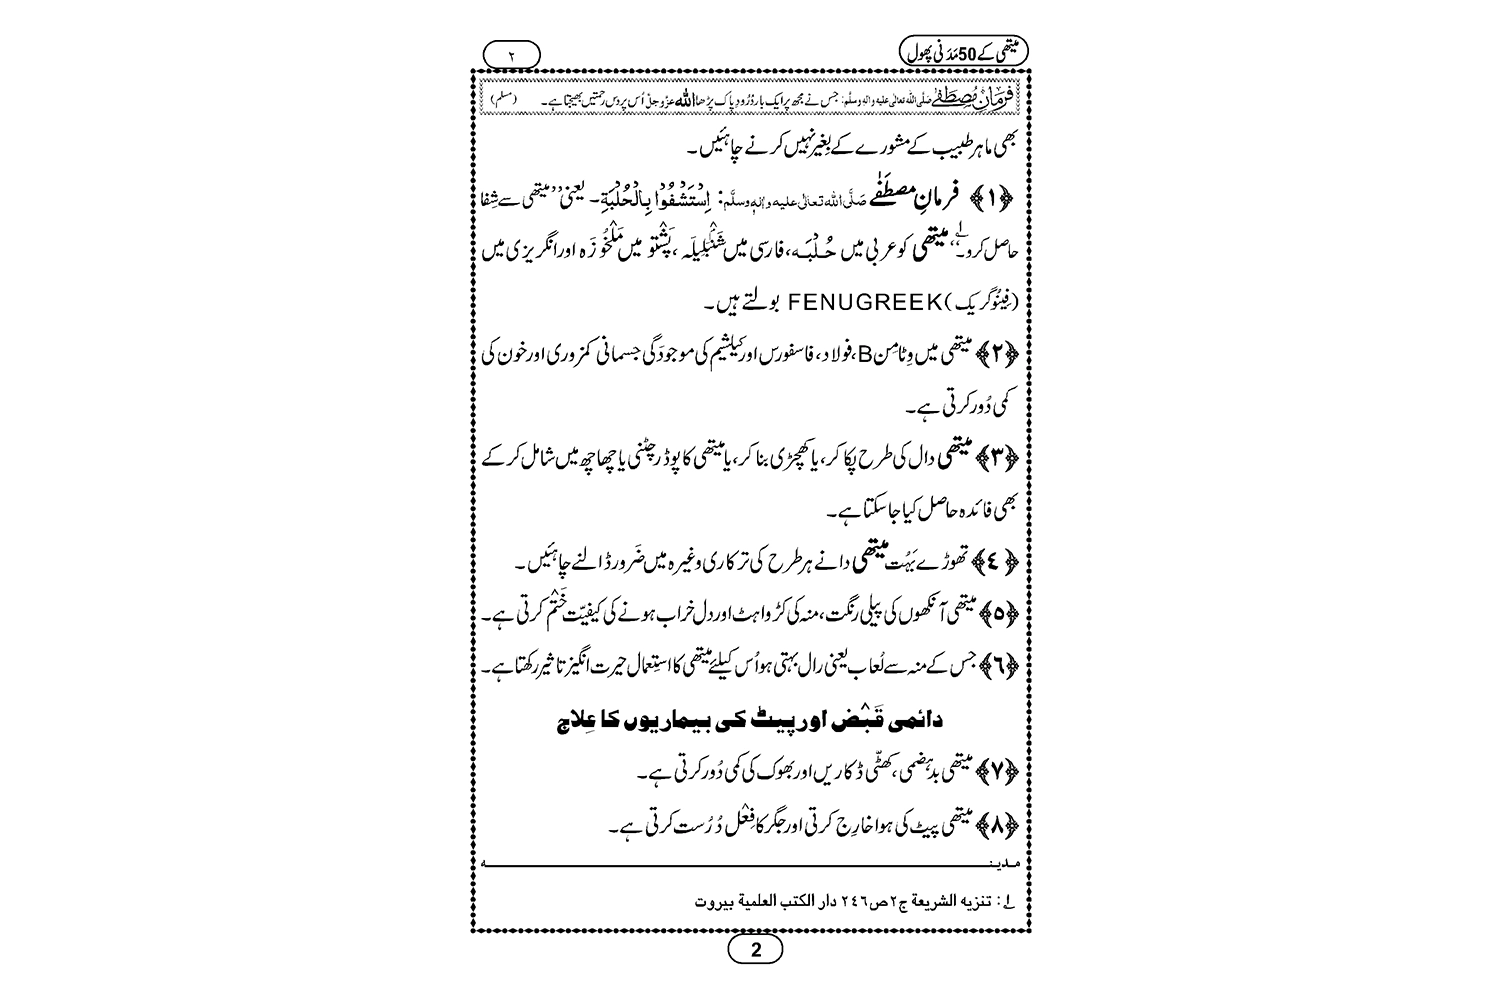 میتھی کے 50 مَدَنی پھول
۲
فرمانِ مُصطَفٰے صَلَّی اللہ تعالٰی علیہ واٰلہٖ وسلَّم: جس نے مجھ پر ایک بار دُرُودِ پاک پڑھا اللہ عزَّوجلَّ اُس پر دس رحمتیں بھیجتا ہے۔ (مسلم)
بھی ماہر طبیب کے مشورے کے بِغیر نہیں کرنے چاہئیں۔
﴿۱﴾ فرمانِ مصطَفٰے صَلَّی اللہ تعالٰی علیہ واٰلہٖ وسلَّم: اِسْتَشْفُوْا بِالْحُلْبَةِ۔ یعنی ’’میتھی سے شِفا
حاصل کرو۔‘‘ ۱؎ میتھی کو عربی میں حُلْبَہ، فارسی میں شَنْبَلِیلَہ، پَشْتو میں مَلْخُوزَہ اور انگریزی میں
(فِینُوگرِیک) FENUGREEK بولتے ہیں۔
﴿۲﴾ میتھی میں وِٹامِن B، فولاد، فاسفورس اور کیلشیم کی موجودَگی جسمانی کمزوری اور خون کی
کمی دُور کرتی ہے۔
﴿۳﴾ میتھی دال کی طرح پکا کر، یا کھچڑی بنا کر، یا میتھی کا پوڈر چٹنی یا چھاچھ میں شامل کر کے
بھی فائدہ حاصل کیا جا سکتا ہے۔
﴿٤﴾ تھوڑے بَہُت میتھی دانے ہر طرح کی ترکاری وغیرہ میں ضَرور ڈالنے چاہئیں۔
﴿٥﴾ میتھی آنکھوں کی پیلی رنگت، منہ کی کڑواہٹ اور دل خراب ہونے کی کیفیّت خَتْم کرتی ہے۔
﴿٦﴾ جس کے منہ سے لُعاب یعنی رال بہتی ہو اُس کیلئے میتھی کا استِعمال حیرت انگیز تاثیر رکھتا ہے۔
دائمی قَبْض اور پیٹ کی بیماریوں کا عِلاج
﴿۷﴾ میتھی بدہضمی، کھٹّی ڈکاریں اور بھوک کی کمی دُور کرتی ہے۔
﴿۸﴾ میتھی پیٹ کی ہوا خارِج کرتی اور جگر کا فِعْل دُرُست کرتی ہے۔
مدینہ
۱؎: تنزيه الشريعة ج۲ ص۲٤٦ دار الكتب العلمية بيروت
2